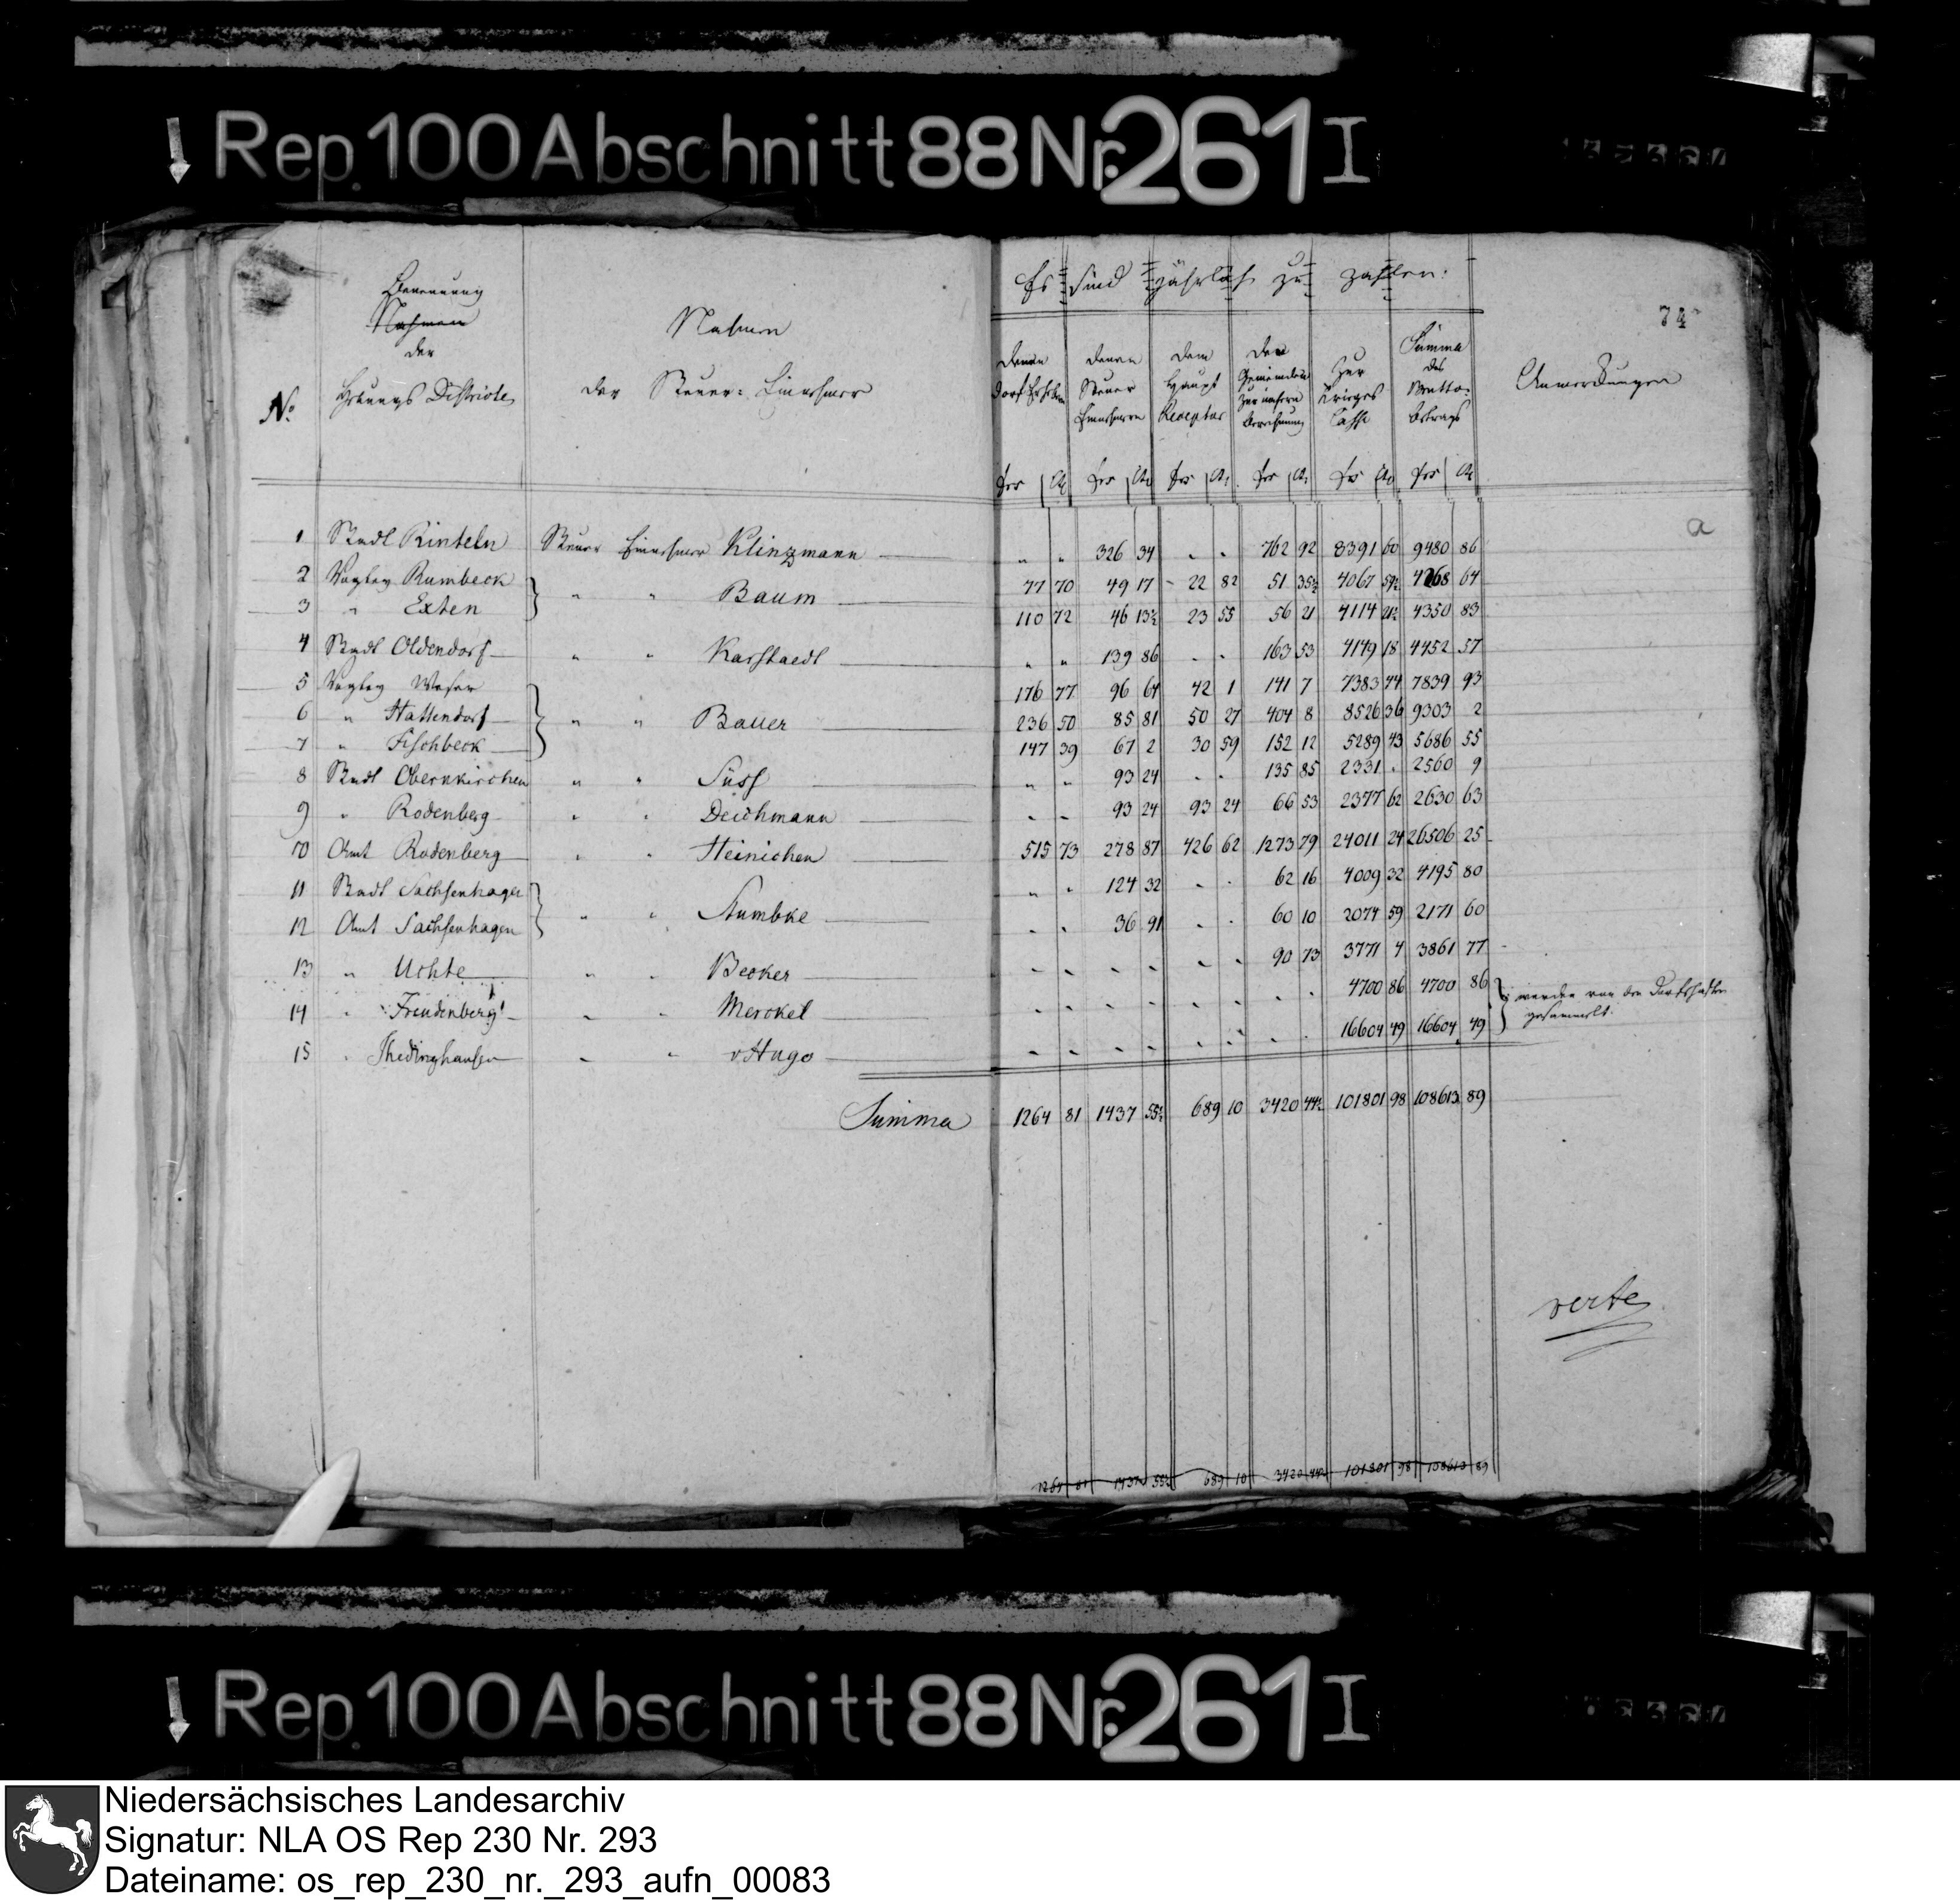 Rep. 100 Abschnitt 88 Nr. 261 I
74
Es sind jährlich zu zahlen:
No
Benennung
Nahmen
der
Hebungs Districte
Nahmen
der Steuer-Einnehmer
denen Dorf Erhebern
denen Steuer Einnehmern
dem Haupt Receptor
den Gemeinden zur nähern Berechnung
Zur Krieges Casse
Summa des Brutto-Betrags
Anmerkungen
frs Ct frs Ct frs Ct frs Ct frs Ct frs Ct
a
1 Stadt Rinteln Steuer Einnehmer Klinzmann „ „ 326 34 „ „ 762 92 8391 60 9480 86
2 Vogtey Rumbeck } „ „ Baum 77 70 49 17 22 82 51 35½ 4067 59½ 4268 64
3 „ Exten 110 72 46 13½ 23 55 56 21 4114 21½ 4350 83
4 Stadt Oldendorf „ „ Karstaedt „ „ 139 86 „ „ 163 53 4149 18 4452 57
5 Vogtey Weser 176 77 96 64 42 1 141 7 7383 44 7839 93
6 „ Hattendorf } „ „ Bauer 236 50 85 81 50 27 404 8 8526 36 9303 2
7 „ Fischbeck 147 39 67 2 30 59 152 12 5289 43 5686 55
8 Stadt Obernkirchen „ „ Süss „ „ 93 24 „ „ 135 85 2331 „ 2560 9
9 „ Rodenberg „ „ Deichmann „ „ 93 24 93 24 66 53 2377 62 2630 63
10 Amt Rodenberg „ „ Heinichen 515 73 278 87 426 62 1273 79 24011 24 26506 25
11 Stadt Sachsenhagen „ „ 124 32 „ „ 62 16 4009 32 4195 80
12 Amt Sachsenhagen } „ „ Stumbke „ „ 36 91 „ „ 60 10 2074 59 2171 60
13 „ Uchte „ „ Becker „ „ „ „ „ „ 90 73 3771 4 3861 77
14 „ Freudenberg „ „ Merckel „ „ „ „ „ „ „ „ 4700 86 4700 86
} werden von den gesammelt.
15 „ Thedinghausen „ „ v Hugo „ „ „ „ „ „ „ „ 16604 49 16604 49
Summa 1264 81 1437 55½ 689 10 3420 44½ 101801 98 108613 89
verte
1264 81 1437 55½ 689 10 3420 44½ 101801 98 108613 89
Rep. 100 Abschnitt 88 Nr. 261 I
Niedersächsisches Landesarchiv
Signatur: NLA OS Rep 230 Nr. 293
Dateiname: os_rep_230_nr._293_aufn_00083